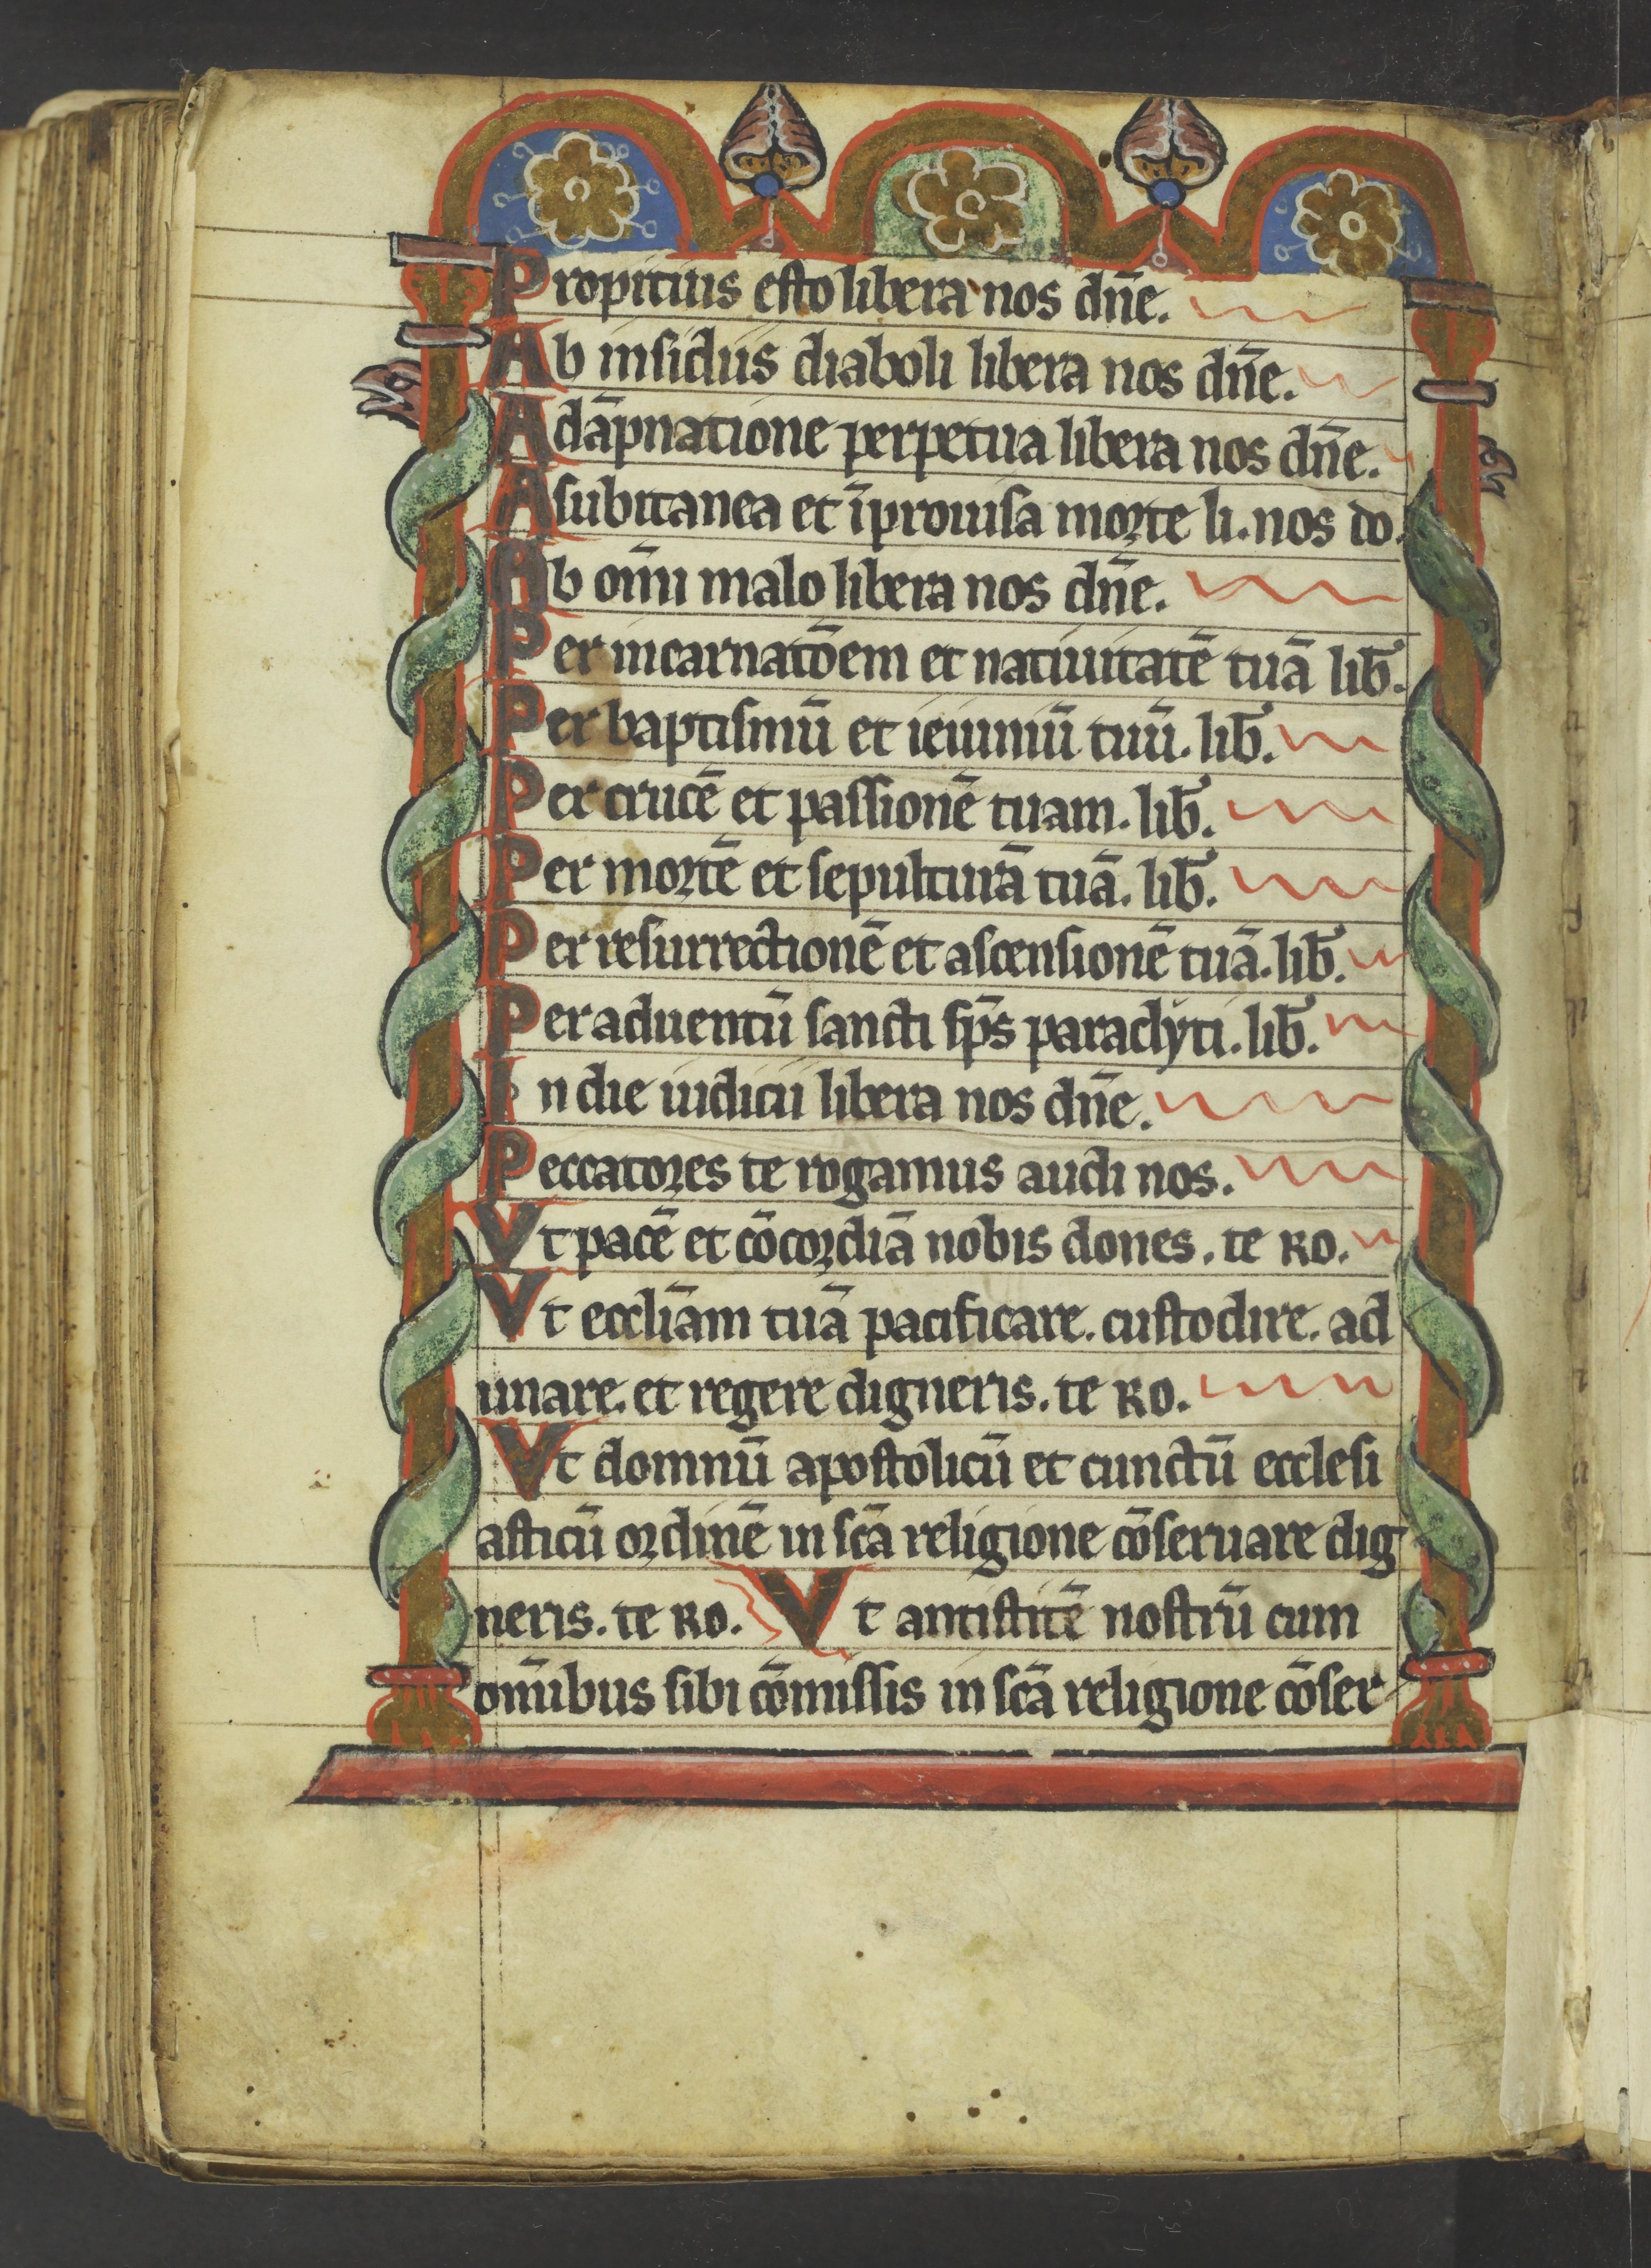 Propitius esto libera nos dn̄e.
Ab insidiis diaboli libera nos dn̄e.
A dāpnatione perpetua libera nos dn̄e.
A subitanea et īprouisa morte li. nos do.
Ab om̄i malo libera nos dn̄e.
Per incarnatōem et natiuitatē tuā lib̄.
Per baptismū et ieiuniū tuū. lib̄.
Per crucē et passionē tuam. lib̄.
Per mortē et sepulturā tuā. lib̄.
Per resurrectionē et ascensionē tuā. lib̄.
Per aduentū sancti sp̄s paraclyti. lib̄.
In die iudicii libera nos dn̄e.
Peccatores te rogamus audi nos.
Vt pacē et cōcordiā nobis dones. te RO.
Vt eccl̄iam tuā pacificare. custodire. ad
unare. et regere digneris. te RO.
Vt domnū apostolicū et cunctū ecclesi
asticū ordinē in sc̄a religione cōseruare dig
neris. te RO. Vt antistitē nostrū cum
om̄ibus sibi cōmissis in sc̄a religione cōser